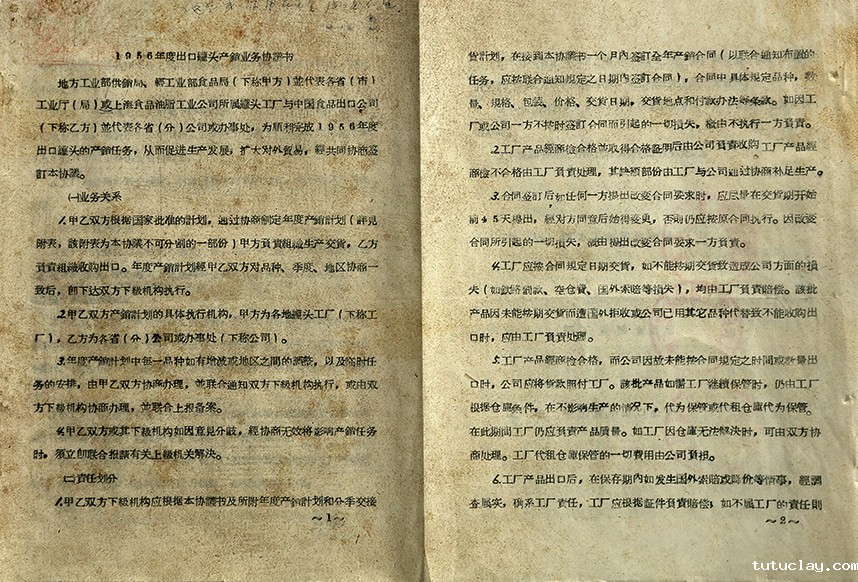 1956年度出口罐头产銷业务协議书
地方工业部供銷局、輕工业部食品局（下称甲方）並代表各省（市）
工业厅（局）或上海食品油脂工业公司所属罐头工厂与中国食品出口公司
（下称乙方）並代表各省（分）公司或办事处，为顺利完成1956年度
出口罐头的产銷任务，从而促进生产发展，扩大对外貿易，經共同协商签
訂本协議。
㈠业务关系
1.甲乙双方根据国家批准的計划，通过协商制定年度产銷計划（詳見
附表，該附表为本协議不可分割的一部份）甲方負責組織生产交貨，乙方
負責組織收购出口。年度产銷計划經甲乙双方对品种、季度、地区协商一
致后，卽下达双方下級机构执行。
2.甲乙双方产銷計划的具体执行机构，甲方为各地罐头工厂（下称工
厂），乙方为各省（分）公司或办事处（下称公司）。
3.年度产銷計划中每一品种如有增减或地区之間的調整，以及临时任
务的安排，由甲乙双方协商办理，並联合通知双方下級机构执行，或由双
方下級机构协商办理，並联合上报备案。
4.甲乙双方或其下級机构如因意見分歧，經协商无效将影响产銷任务
时，須立卽联合报請有关上級机关解决。
㈡責任划分
1.甲乙双方下級机构应根据本协議书及所附年度产銷計划和分季交接
～1～
貨計划，在接到本协議书一个月內签訂全年产銷合同（以联合通知布置的
任务，应按联合通知規定之日期內签訂合同），合同中具体規定品种，数
量、規格、包装、价格、交貨日期，交貨地点和付款办法等条款。如因工
厂或公司一方不按时签訂合同而引起的一切損失，槪由不执行一方負責。
2.工厂产品經商檢合格並取得合格証明后由公司負責收购工厂产品經
商檢不合格由工厂負責处理，其缺額部份由工厂与公司通过协商补足生产。
3.合同签訂后如任何一方提出改变合同要求时，应尽量在交貨期开始
前45天提出，經对方同意后始得变更，否則仍应按原合同执行。因改变
合同所引起的一切損失，槪由提出改变合同要求一方負責。
4.工厂应按合同規定日期交貨，如不能按期交貨致造成公司方面的損
失（如鉄路罰款、空仓費、国外索賠等損失），均由工厂負責賠偿。該批
产品因未能按期交貨而遭国外拒收或公司已用其它品种代替致不能收购出
口时，应由工厂負責处理。
5.工厂产品經商檢合格，而公司因故未能按合同規定之时間或数量出
口时，公司应将貨款照付工厂。該批产品如需工厂继續保管时，仍由工厂
根据仓庫条件，在不影响生产的情况下，代为保管或代租仓庫代为保管。
在此期間工厂仍应負責产品质量。如工厂因仓庫无法解决时，可由双方协
商处理。工厂代租仓庫保管的一切費用由公司負担。
6.工厂产品出口后，在保存期內如发生国外索賠或降价等情事，經調
查属实，确系工厂責任，工厂应根据証件負責賠偿；如不属工厂的責任則
～2～
tutuclay.com